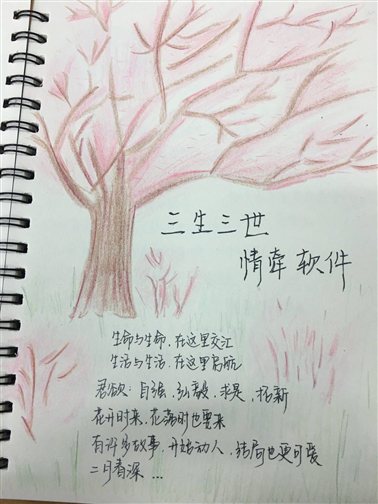 三生三世
情牵软件
生命与生命，在这里交汇
生活与生活，在这里启航
君欲：自强，弘毅，求是，拓新
花开时来，花落时也要来
有许多故事，开始动人，结局也更可爱
二月春深...